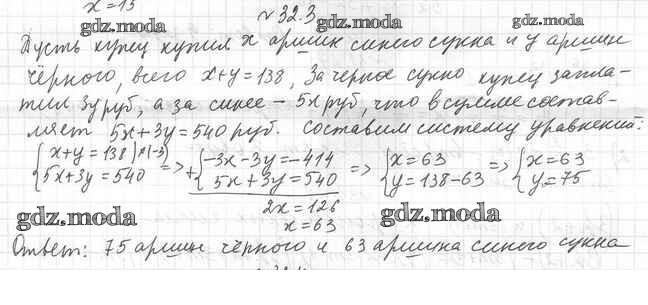 x = 13
№ 32.3
gdz.moda gdz.moda gdz.moda
Пусть купец купил x аршин синего сукна и y аршин
чёрного, всего x+y=138, За черное сукно купец запла-
тил 3y руб, а за синее – 5x руб, что в сумме состав-
ляет 5x+3y=540 руб. Составим систему уравнений:
{x+y=138 |×(-3) => +{-3x-3y=-414 => {x=63 => {x=63
5x+3y=540 5x+3y=540 y=138-63 y=75
2x=126
x=63
gdz.moda gdz.moda
Ответ: 75 аршин чёрного и 63 аршина синего сукна